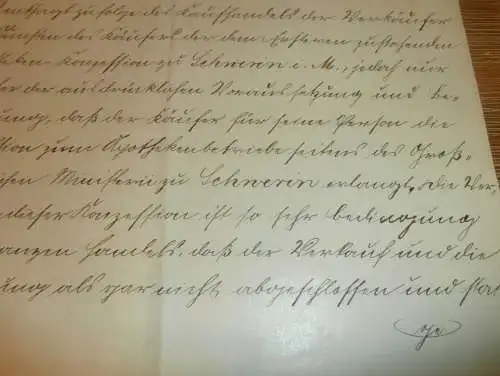 entsagt zufolge des Kaufhandels der Verkäufer
Gunsten des Käufers der dem Ersteren zustehenden
theken-Konzession zu Schwerin i. M., jedoch nur
ter der ausdrücklichen Voraussetzung und Be-
ung, daß der Käufer für seine Person die
sion zum Apothekenbetriebe seitens des Groß-
ichen Ministerii zu Schwerin erlangt. Die Ver-
dieser Konzession ist so sehr Bedingung
anzen Handels, daß der Verkauf und die
ung als gar nicht abgeschlossen und stat
ge